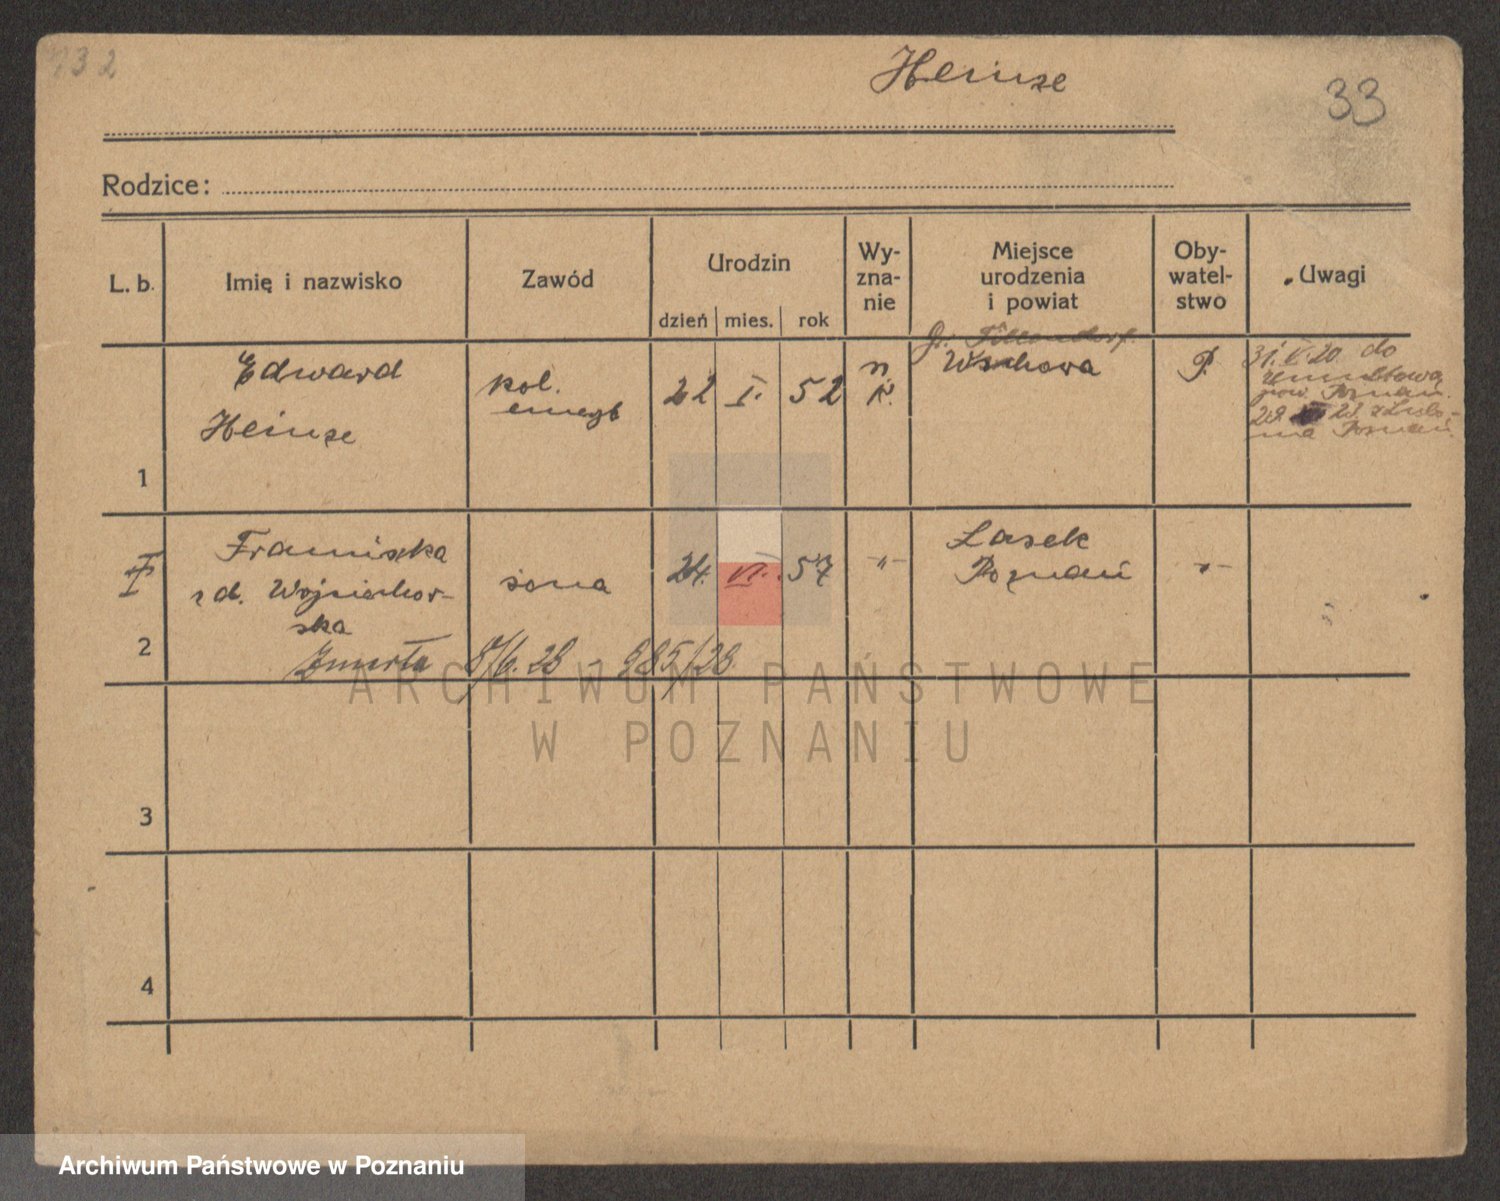 732
Heinze
33
Rodzice:
L. b.
Imię i nazwisko
Zawód
Urodzin
dzień mies. rok
Wy-
zna-
nie
Miejsce
urodzenia
i powiat
Oby-
watel-
stwo
Uwagi
1
Edward
Heinze
kol.
emeryt
22 I. 52
Gr.
Wschowa
P.
31. V. 20. do
pow. Poznań.
Poznań.
2
Franciszka
zd. Wojciechow-
ska
żona
24. VI. 57
-"-
Lasek
Poznań
-"-
Zmarła 8/6. 28 - 985/28
3
4
ARCHIWUM PAŃSTWOWE
W POZNANIU
Archiwum Państwowe w Poznaniu